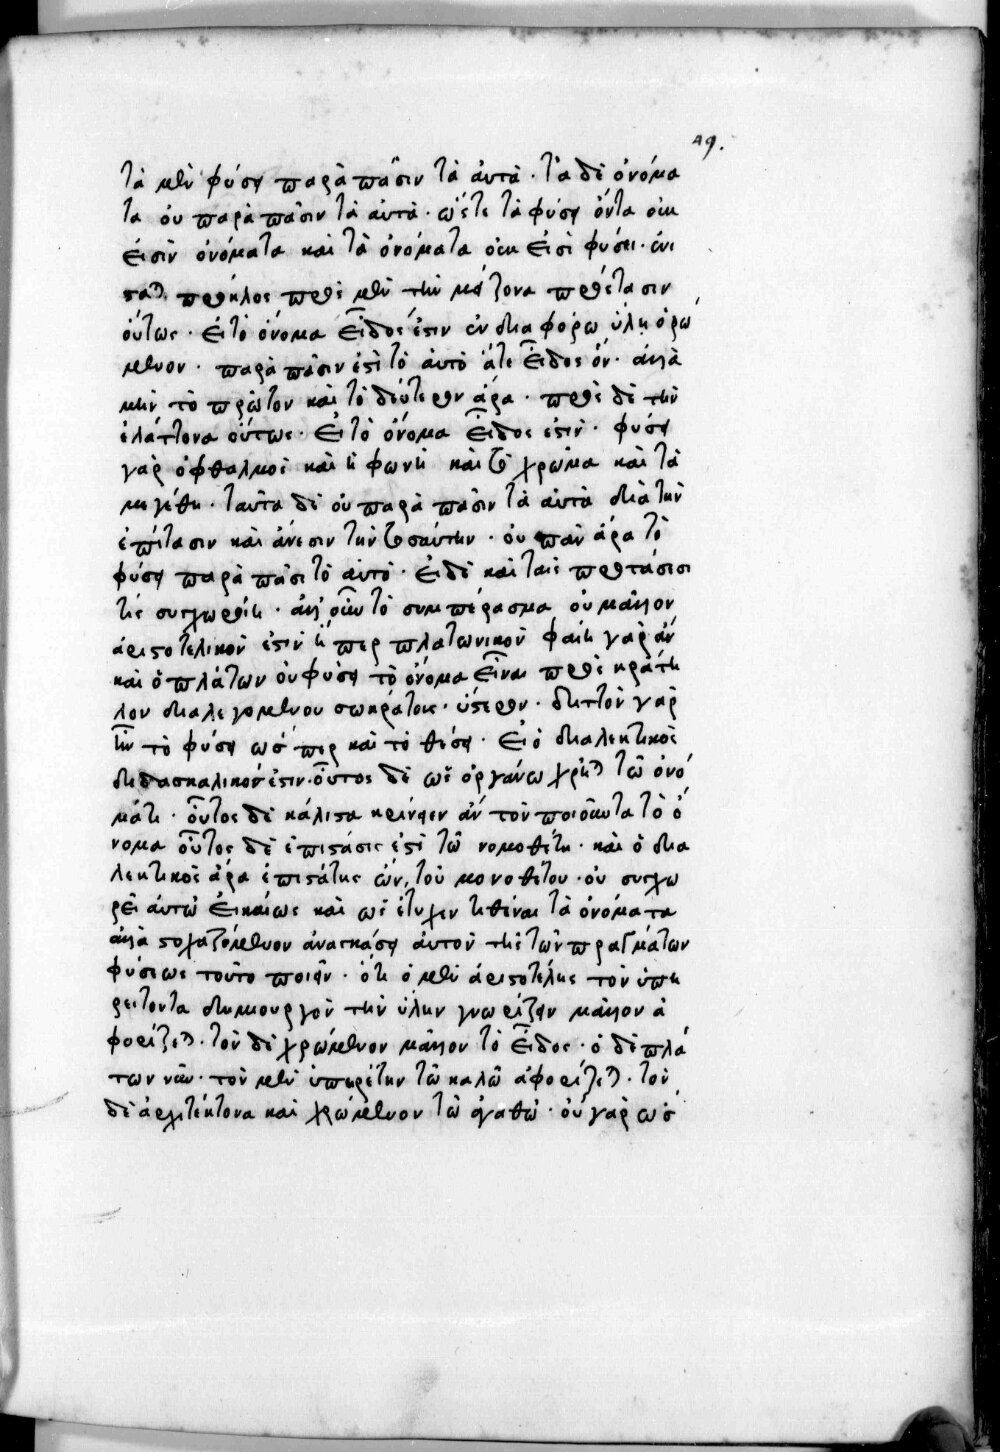 49.
τὰ μὲν φύσει παρὰ πᾶσιν τὰ ἀυτὰ · τὰ δὲ ὀνόμα
τα ὀυ παρὰ πᾶσιν τὰ ἀυτὰ · ὥστε τὰ φύσει ὄντα ὀυκ
ἐισὶν ὀνόματα καὶ τὰ ὀνόματα ὀυκ ἐισὶ φύσει · ἐνι
σται πρόκλος πρὸς μὲν τὴν μείζονα πρότασιν
ὅυτως · ἐι τὸ ὄνομα εἶδός ἐστιν ἐν διαφόρω ὕλη ὁρώ
μενον · παρὰ πᾶσιν ἐστὶ τὸ ἀυτὸ ἅτε εἶδος ὄν · ἀλλὰ
μὴν τὸ πρῶτον καὶ τὸ δεύτερον ἄρα · πρὸς δὲ τὴν
ἐλάττονα ὅυτως · ἐι τὸ ὄνομα εἶδος ἐστὶν · φύσει
γὰρ ὀφθαλμοὶ καὶ ἡ φωνὴ καὶ τὸ χρῶμα καὶ τὰ
μεγέθη · ταῦτα δὲ ὀυ παρὰ πᾶσιν τὰ ἀυτὰ διὰ τὴν
ἐπίτασιν καὶ ἄνεσιν τὴν τοσαύτην · ὀυ πᾶν ἄρα τὸ
φύσει παρὰ πᾶσι τὸ ἀυτὸ · ἐι δὲ καὶ ταῖς προτάσεσι
τὶς συγχωροίη · ἀλλ' οὖν τὸ συμπέρασμα ὀυ μᾶλλον
ἀριστοτελικὸν ἐστὶν ἤπερ πλατωνικὸν φαίη γὰρ ἂν
καὶ ὁ πλάτων ὀυ φύσει τὸ ὄνομα εἶναι πρὸς κρατύ
λον διαλεγομένου σωκράτους · ὕστερον · διττὸν γὰρ
ἦν τὸ φύσει ὥσπερ καὶ τὸ θέσει · ἐι ὁ διαλεκτικὸς
διδασκαλικὸν ἐστιν · οὗτος δὲ ὡς ὀργάνω χρῆται τῶ ὀνό
ματι · οὗτος δὲ κάλιστα κρίνειεν ἂν τὸν ποιοῦντα τὸ ὄ
νομα οὗτος δὲ ἐπιστάσις ἐστὶ τῶ νομοθέτη · καὶ ὁ δια
λεκτικὸς ἄρα ἐπιστάτης ὢν, τοῦ μονοθέτου · ὀυ συγχω
ρεῖ ἀυτῶ ἐικαίως καὶ ὡς ἔτυχεν τιθέναι τὰ ὀνόματα
ἀλλὰ στοχαζόμενον ἀναγκάσει ἀυτὸν τῆς τῶν πραγμάτων
φύσεως τοῦτο ποιεῖν · ὅτι ὁ μὲν ἀριστοτέλης τὸν ὑπη
ρετοντα δημιουργὸν τὴν ὕλην γνωρίζειν μᾶλλον ἀ
φορίζεται · τὸν δὲ χρώμενον μᾶλλον τὸ εἶδος · ὁ δὲ πλά
των νῦν · τὸν μὲν ὑπηρέτην τῶ καλῶ ἀφορίζεται · τὸν
δὲ ἀρχιτέκτονα καὶ χρώμενον τῶ ἀγαθῶ · ὀυ γὰρ ὡσ